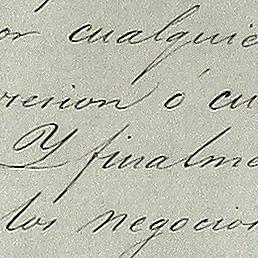 or cualquie
resion ó cu
Y finalme
los negocios